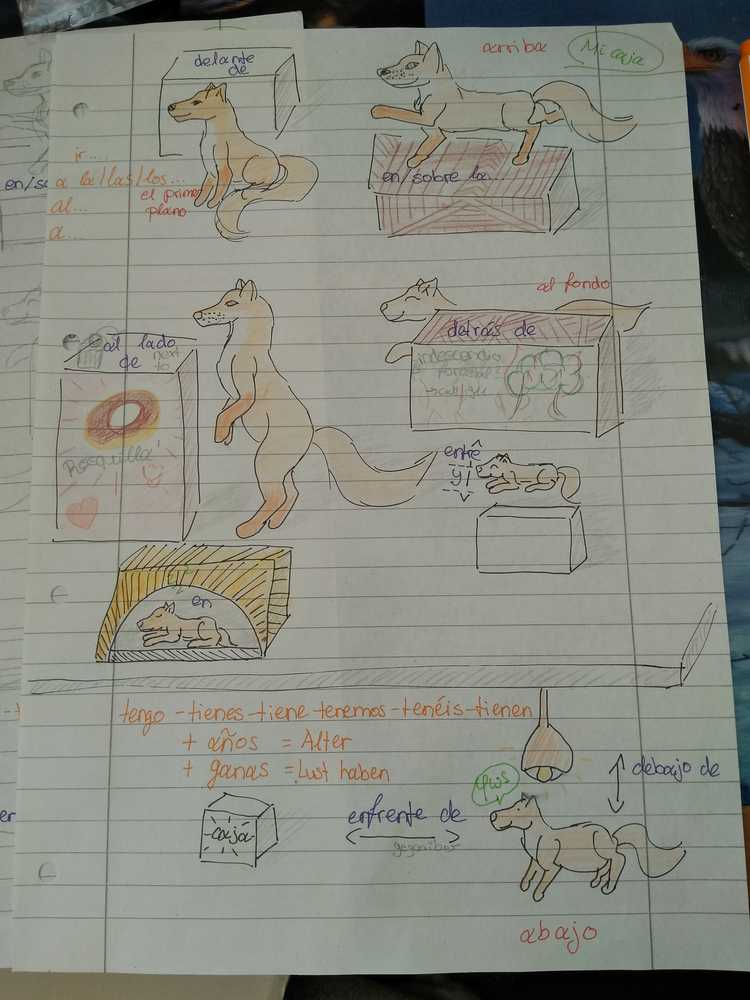 delante
de
arriba
Mi caja
ir....
a la/las/los...
al...
a...
el primer
plano
en/sobre la...
en/su
al fondo
al lado
de
next
to
detrás de
Rosquilla
entre
y
en
tengo - tienes - tiene - tenemos - tenéis - tienen
+ años = Alter
+ ganas = Lust haben
debajo de
enfrente de
caja
abajo
er